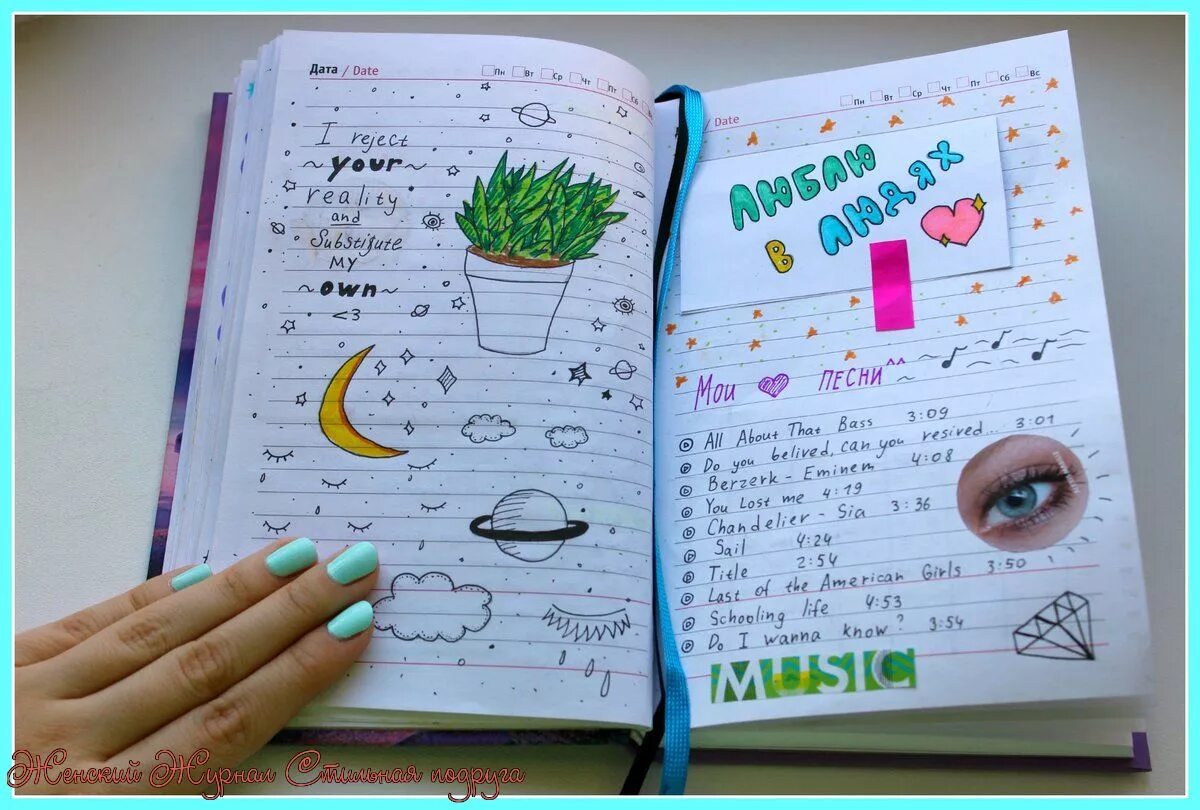 Дата / Date
Пн Вт Ср Чт Пт Сб
I reject
~ your ~
reality
and
Substitute
MY
~ own ~
<3
/ Date
Пн Вт Ср Чт Пт Сб Вс
ЛЮБЛЮ
В ЛЮДЯХ
Мои ПЕСНИ ^^
All About That Bass 3:09
Do you belived, can you resived... 3:01
Berzerk - Eminem 4:08
You Lost me 4:19
Chandelier - Sia 3:36
Sail 4:24
Title 2:54
Last of the American Girls 3:50
Schooling life 4:53
Do I wanna know? 3:54
MUSIC
Женский Журнал Стильная подруга